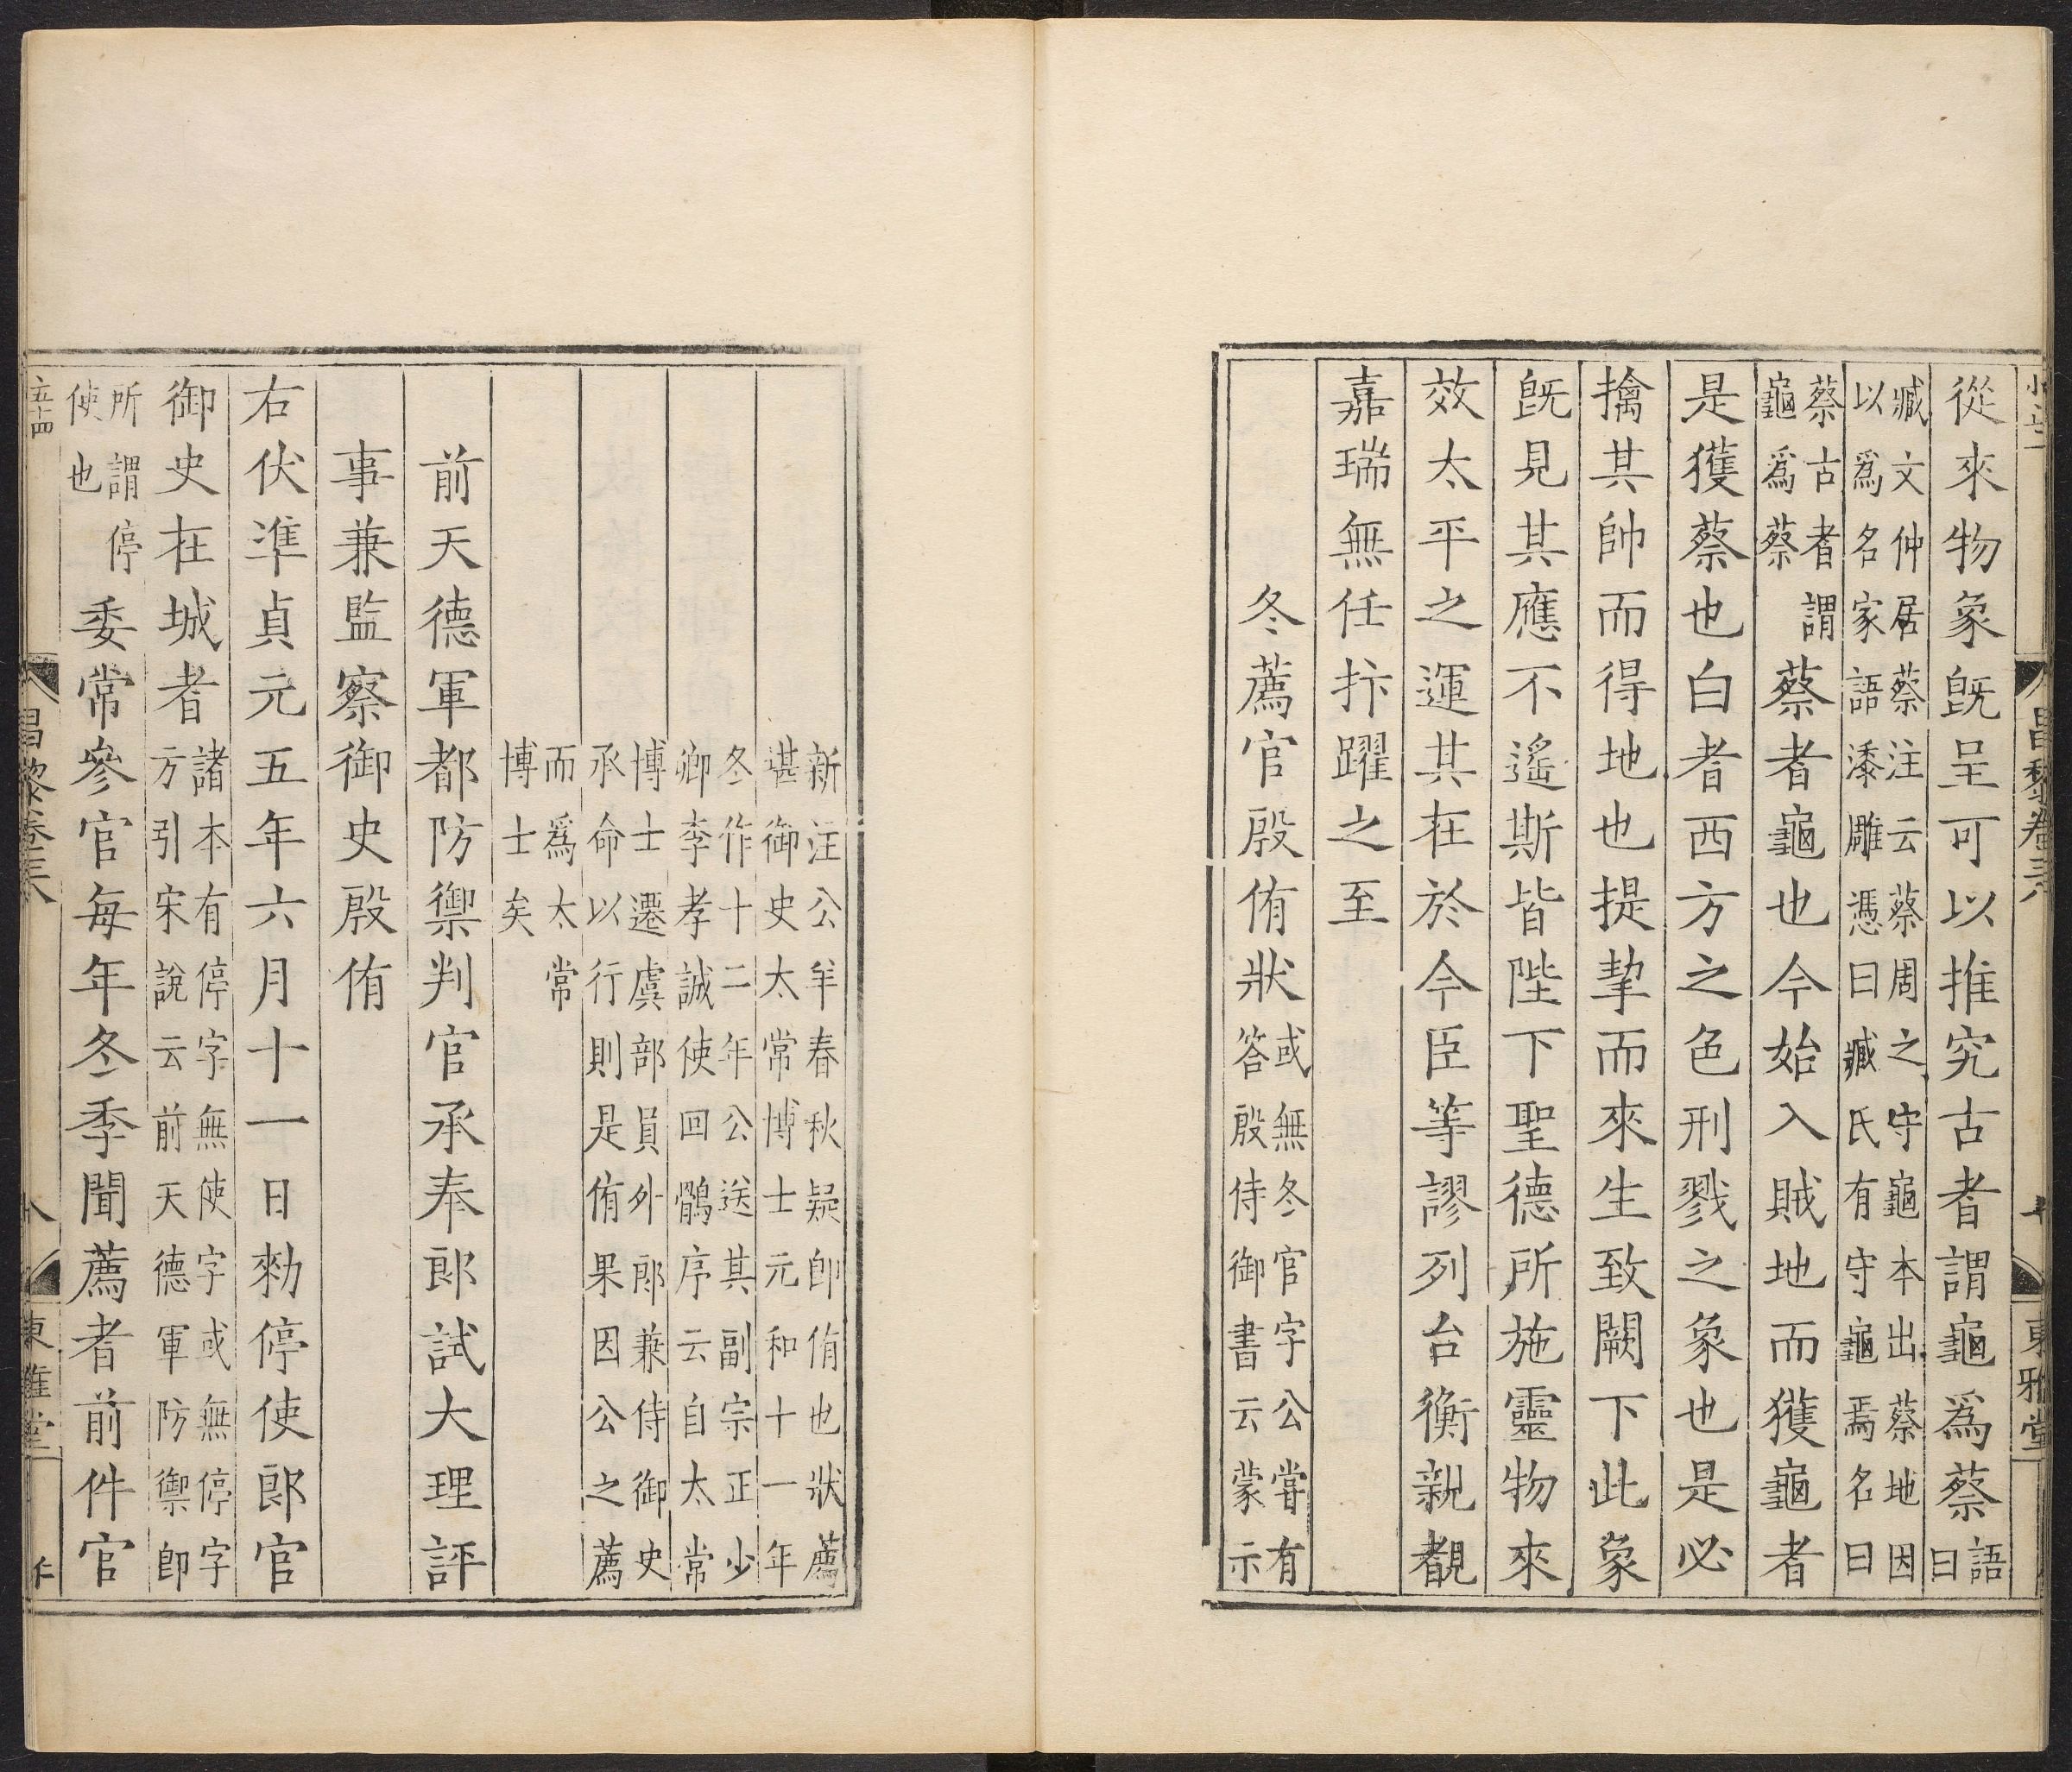 從來物象旣呈可以推究古者謂龜爲蔡語曰
臧文仲居蔡注云蔡周之守龜本出蔡地因
以爲名家語漆雕憑曰臧氏有守龜焉名曰
蔡古者謂
龜爲蔡
蔡者龜也今始入賊地而獲龜者
是獲蔡也白者西方之色刑戮之象也是必
擒其帥而得地也提挈而來生致闕下此象
旣見其應不遙斯皆陛下聖德所施靈物來
效太平之運其在於今臣等謬列台衡親覩
嘉瑞無任抃躍之至
冬薦官殷侑狀
或無冬官字公嘗有
答殷侍御書云蒙示
新注公羊春秋疑卽侑也狀薦
堪御史太常博士元和十一年
冬作十二年公送其副宗正少
卿李孝誠使回鶻序云自太常
博士遷虞部員外郎兼侍御史
承命以行則是侑果因公之薦
而爲太常
博士矣
前天德軍都防禦判官承奉郎試大理評
事兼監察御史殷侑
右伏準貞元五年六月十一日勑停使郎官
御史在城者
諸本有停字無使字或無停字
方引宋說云前天德軍防禦卽
所謂停
使也
委常參官每年冬季聞薦者前件官
昌黎卷三八
東雅堂